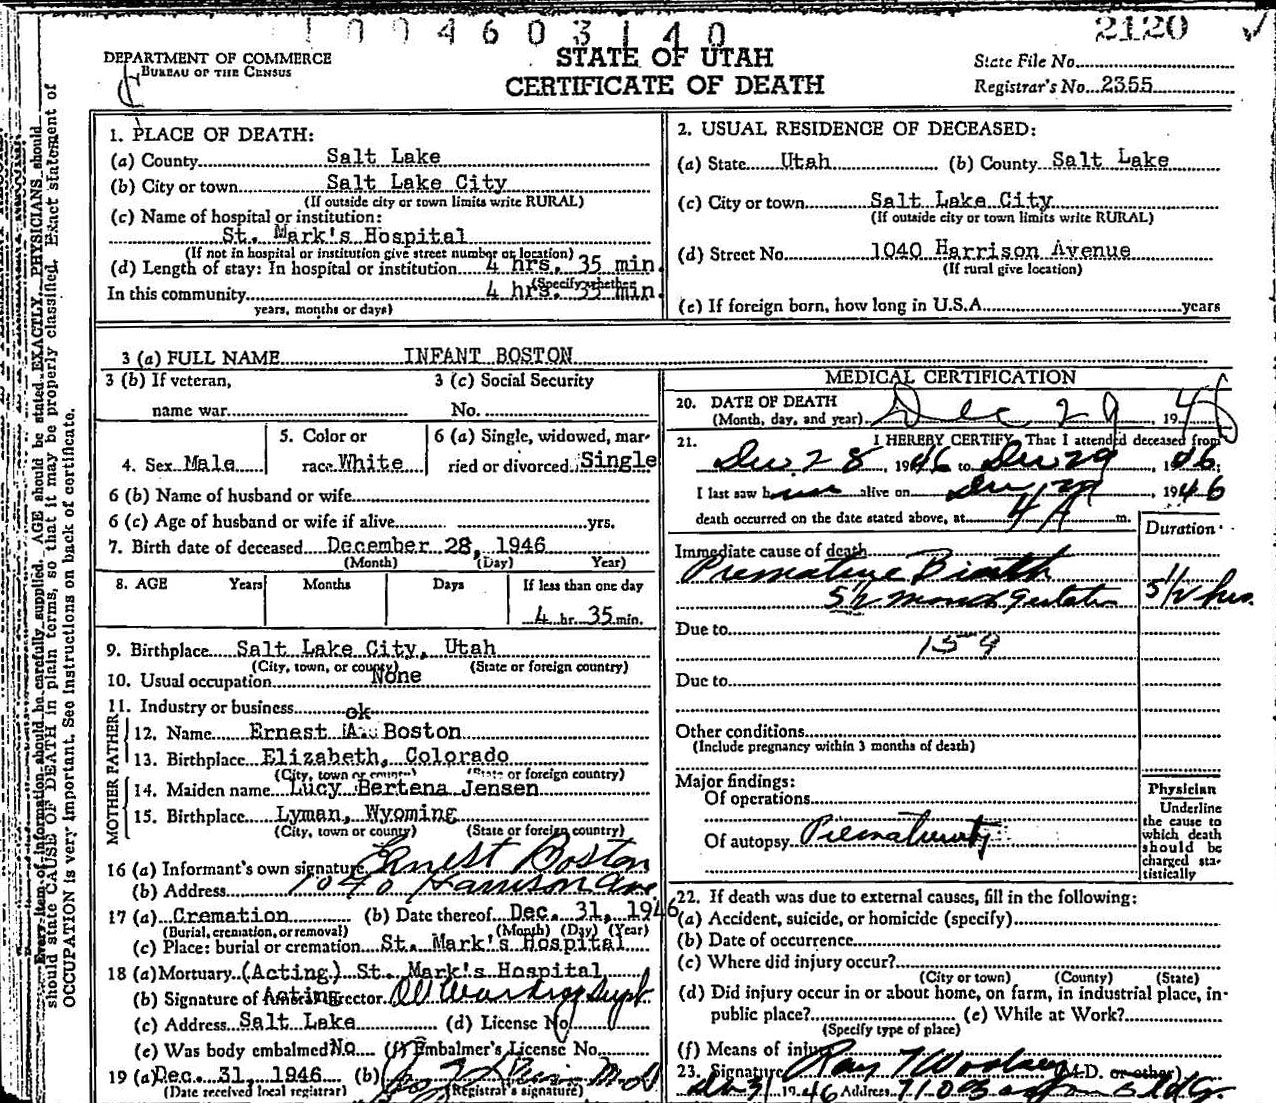 1 0 0 4 6 0 3 1 4 0
2120
DEPARTMENT OF COMMERCE
BUREAU OF THE CENSUS
STATE OF UTAH
CERTIFICATE OF DEATH
State File No.
Registrar's No. 2355
Every item of information should be carefully supplied. AGE should be stated EXACTLY. PHYSICIANS should
should state CAUSE OF DEATH in plain terms, so that it may be properly classified. Exact statement of
OCCUPATION is very important. See instructions on back of certificate.
1. PLACE OF DEATH:
(a) County Salt Lake
(b) City or town Salt Lake City
(If outside city or town limits write RURAL)
(c) Name of hospital or institution:
St. Mark's Hospital
(If not in hospital or institution give street number or location)
(d) Length of stay: In hospital or institution 4 hrs. 35 min.
(Specify whether
In this community 4 hrs. 35 min.
years, months or days)
2. USUAL RESIDENCE OF DECEASED:
(a) State Utah (b) County Salt Lake
(c) City or town Salt Lake City
(If outside city or town limits write RURAL)
(d) Street No. 1040 Harrison Avenue
(If rural give location)
(e) If foreign born, how long in U.S.A. years
3 (a) FULL NAME INFANT BOSTON
3 (b) If veteran,
name war
3 (c) Social Security
No.
4. Sex Male
5. Color or
race White
6 (a) Single, widowed, mar-
ried or divorced Single
6 (b) Name of husband or wife
6 (c) Age of husband or wife if alive yrs.
7. Birth date of deceased December 28, 1946
(Month) (Day) Year)
8. AGE Years Months Days If less than one day
4 hr. 35 min.
9. Birthplace Salt Lake City, Utah
(City, town, or county) (State or foreign country)
10. Usual occupation None
11. Industry or business
ok
FATHER
12. Name Ernest A. Boston
13. Birthplace Elizabeth, Colorado
(City, town or county) (State or foreign country)
MOTHER
14. Maiden name Lucy Bertena Jensen
15. Birthplace Lyman, Wyoming
(City, town or county) (State or foreign country)
16 (a) Informant's own signature Ernest Boston
(b) Address 1040 Harrison Ave
17 (a) Cremation (b) Date thereof Dec. 31, 1946
(Burial, cremation, or removal) (Month) (Day) (Year)
(c) Place: burial or cremation St. Mark's Hospital
18 (a) Mortuary (Acting) St. Mark's Hospital
(b) Signature of Acting Director Supt
(c) Address Salt Lake (d) License No
(e) Was body embalmed No (f) Embalmer's License No.
19 (a) Dec. 31, 1946 (b) M D
(Date received local registrar) (Registrar's signature)
MEDICAL CERTIFICATION
20. DATE OF DEATH
(Month, day, and year) Dec 29 1946
21. I HEREBY CERTIFY, That I attended deceased from
Dec 28, 1946 to Dec 29, 1946,
I last saw him alive on Dec 29, 1946
death occurred on the date stated above, at 4 A m.
Duration
Immediate cause of death
Premature Birth
5½ month Gestation 5½ hrs.
Due to 159
Due to
Other conditions
(Include pregnancy within 3 months of death)
Major findings:
Of operations
Of autopsy Prematurity
Physician
Underline
the cause to
which death
should be
charged sta-
tistically
22. If death was due to external causes, fill in the following:
(a) Accident, suicide, or homicide (specify)
(b) Date of occurrence
(c) Where did injury occur?
(City or town) (County) (State)
(d) Did injury occur in or about home, on farm, in industrial place, in-
public place? (e) While at Work?
(Specify type of place)
(f) Means of injury
23. Signature Ray T Woolsey (M.D. or other)
Dec 31 1946 Address 710 Bldg.